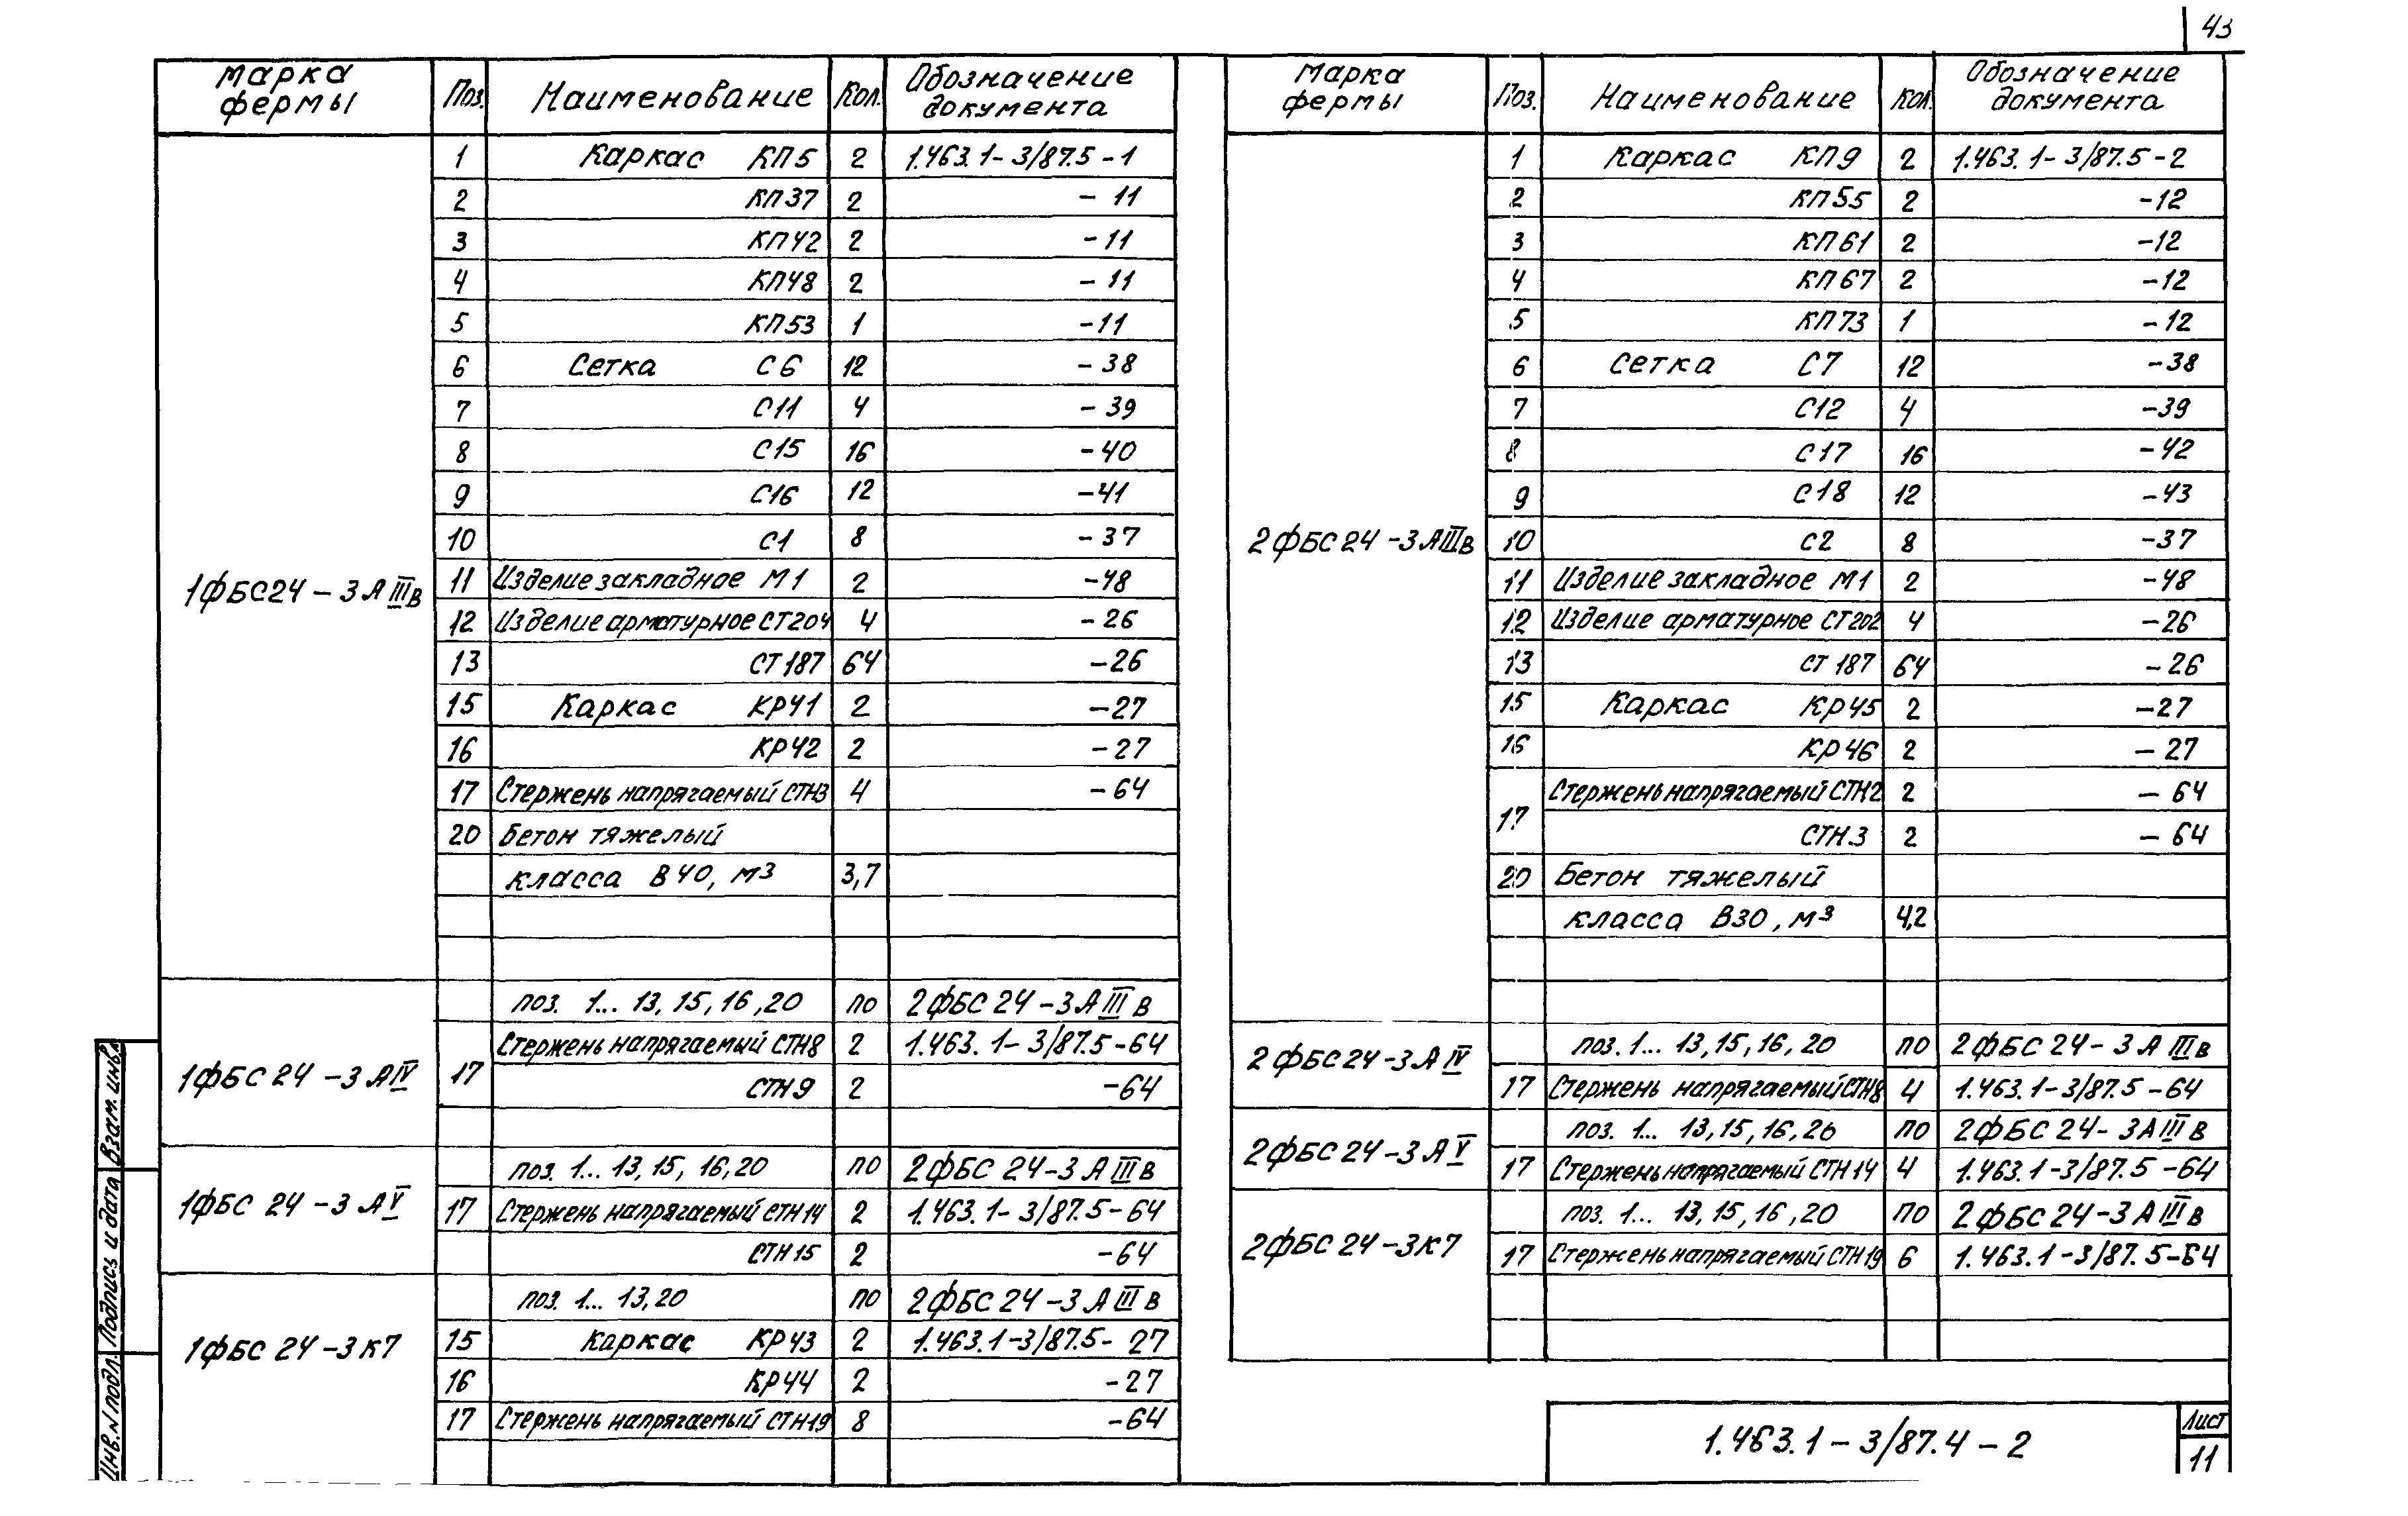 43
Марка фермы Поз. Наименование Кол. Обозначение документа
1ФБС24-3АIIIв
1 Каркас КП5 2 1.463.1-3/87.5-1
2 КП37 2 -11
3 КП42 2 -11
4 КП48 2 -11
5 КП53 1 -11
6 Сетка С6 12 -38
7 С11 4 -39
8 С15 16 -40
9 С16 12 -41
10 С1 8 -37
11 Изделие закладное М1 2 -48
12 Изделие арматурное СТ204 4 -26
13 СТ187 64 -26
15 Каркас КР41 2 -27
16 КР42 2 -27
17 Стержень напрягаемый СТН3 4 -64
20 Бетон тяжелый
класса В40, м3 3,7
1ФБС24-3АIV
поз. 1... 13, 15, 16, 20 по 2ФБС24-3АIIIв
17 Стержень напрягаемый СТН8 2 1.463.1-3/87.5-64
СТН9 2 -64
1ФБС24-3АV
поз. 1... 13, 15, 16, 20 по 2ФБС24-3АIIIв
17 Стержень напрягаемый СТН14 2 1.463.1-3/87.5-64
СТН15 2 -64
1ФБС24-3К7
поз. 1... 13, 20 по 2ФБС24-3АIIIв
15 Каркас КР43 2 1.463.1-3/87.5-27
16 КР44 2 -27
17 Стержень напрягаемый СТН19 8 -64
Марка фермы Поз. Наименование Кол. Обозначение документа
2ФБС24-3АIIIв
1 Каркас КП9 2 1.463.1-3/87.5-2
2 КП55 2 -12
3 КП61 2 -12
4 КП67 2 -12
5 КП73 1 -12
6 Сетка С7 12 -38
7 С12 4 -39
8 С17 16 -42
9 С18 12 -43
10 С2 8 -37
11 Изделие закладное М1 2 -48
12 Изделие арматурное СТ202 4 -26
13 СТ187 64 -26
15 Каркас КР45 2 -27
16 КР46 2 -27
17 Стержень напрягаемый СТН2 2 -64
СТН3 2 -64
20 Бетон тяжелый
класса В30, м3 4,2
2ФБС24-3АIV
поз. 1... 13, 15, 16, 20 по 2ФБС24-3АIIIв
17 Стержень напрягаемый СТН8 4 1.463.1-3/87.5-64
2ФБС24-3АV
поз. 1... 13, 15, 16, 20 по 2ФБС24-3АIIIв
17 Стержень напрягаемый СТН14 4 1.463.1-3/87.5-64
2ФБС24-3К7
поз. 1... 13, 15, 16, 20 по 2ФБС24-3АIIIв
17 Стержень напрягаемый СТН19 6 1.463.1-3/87.5-64
Инв.N подл. Подпись и дата Взам. инв.
1.463.1-3/87.4-2
Лист
11